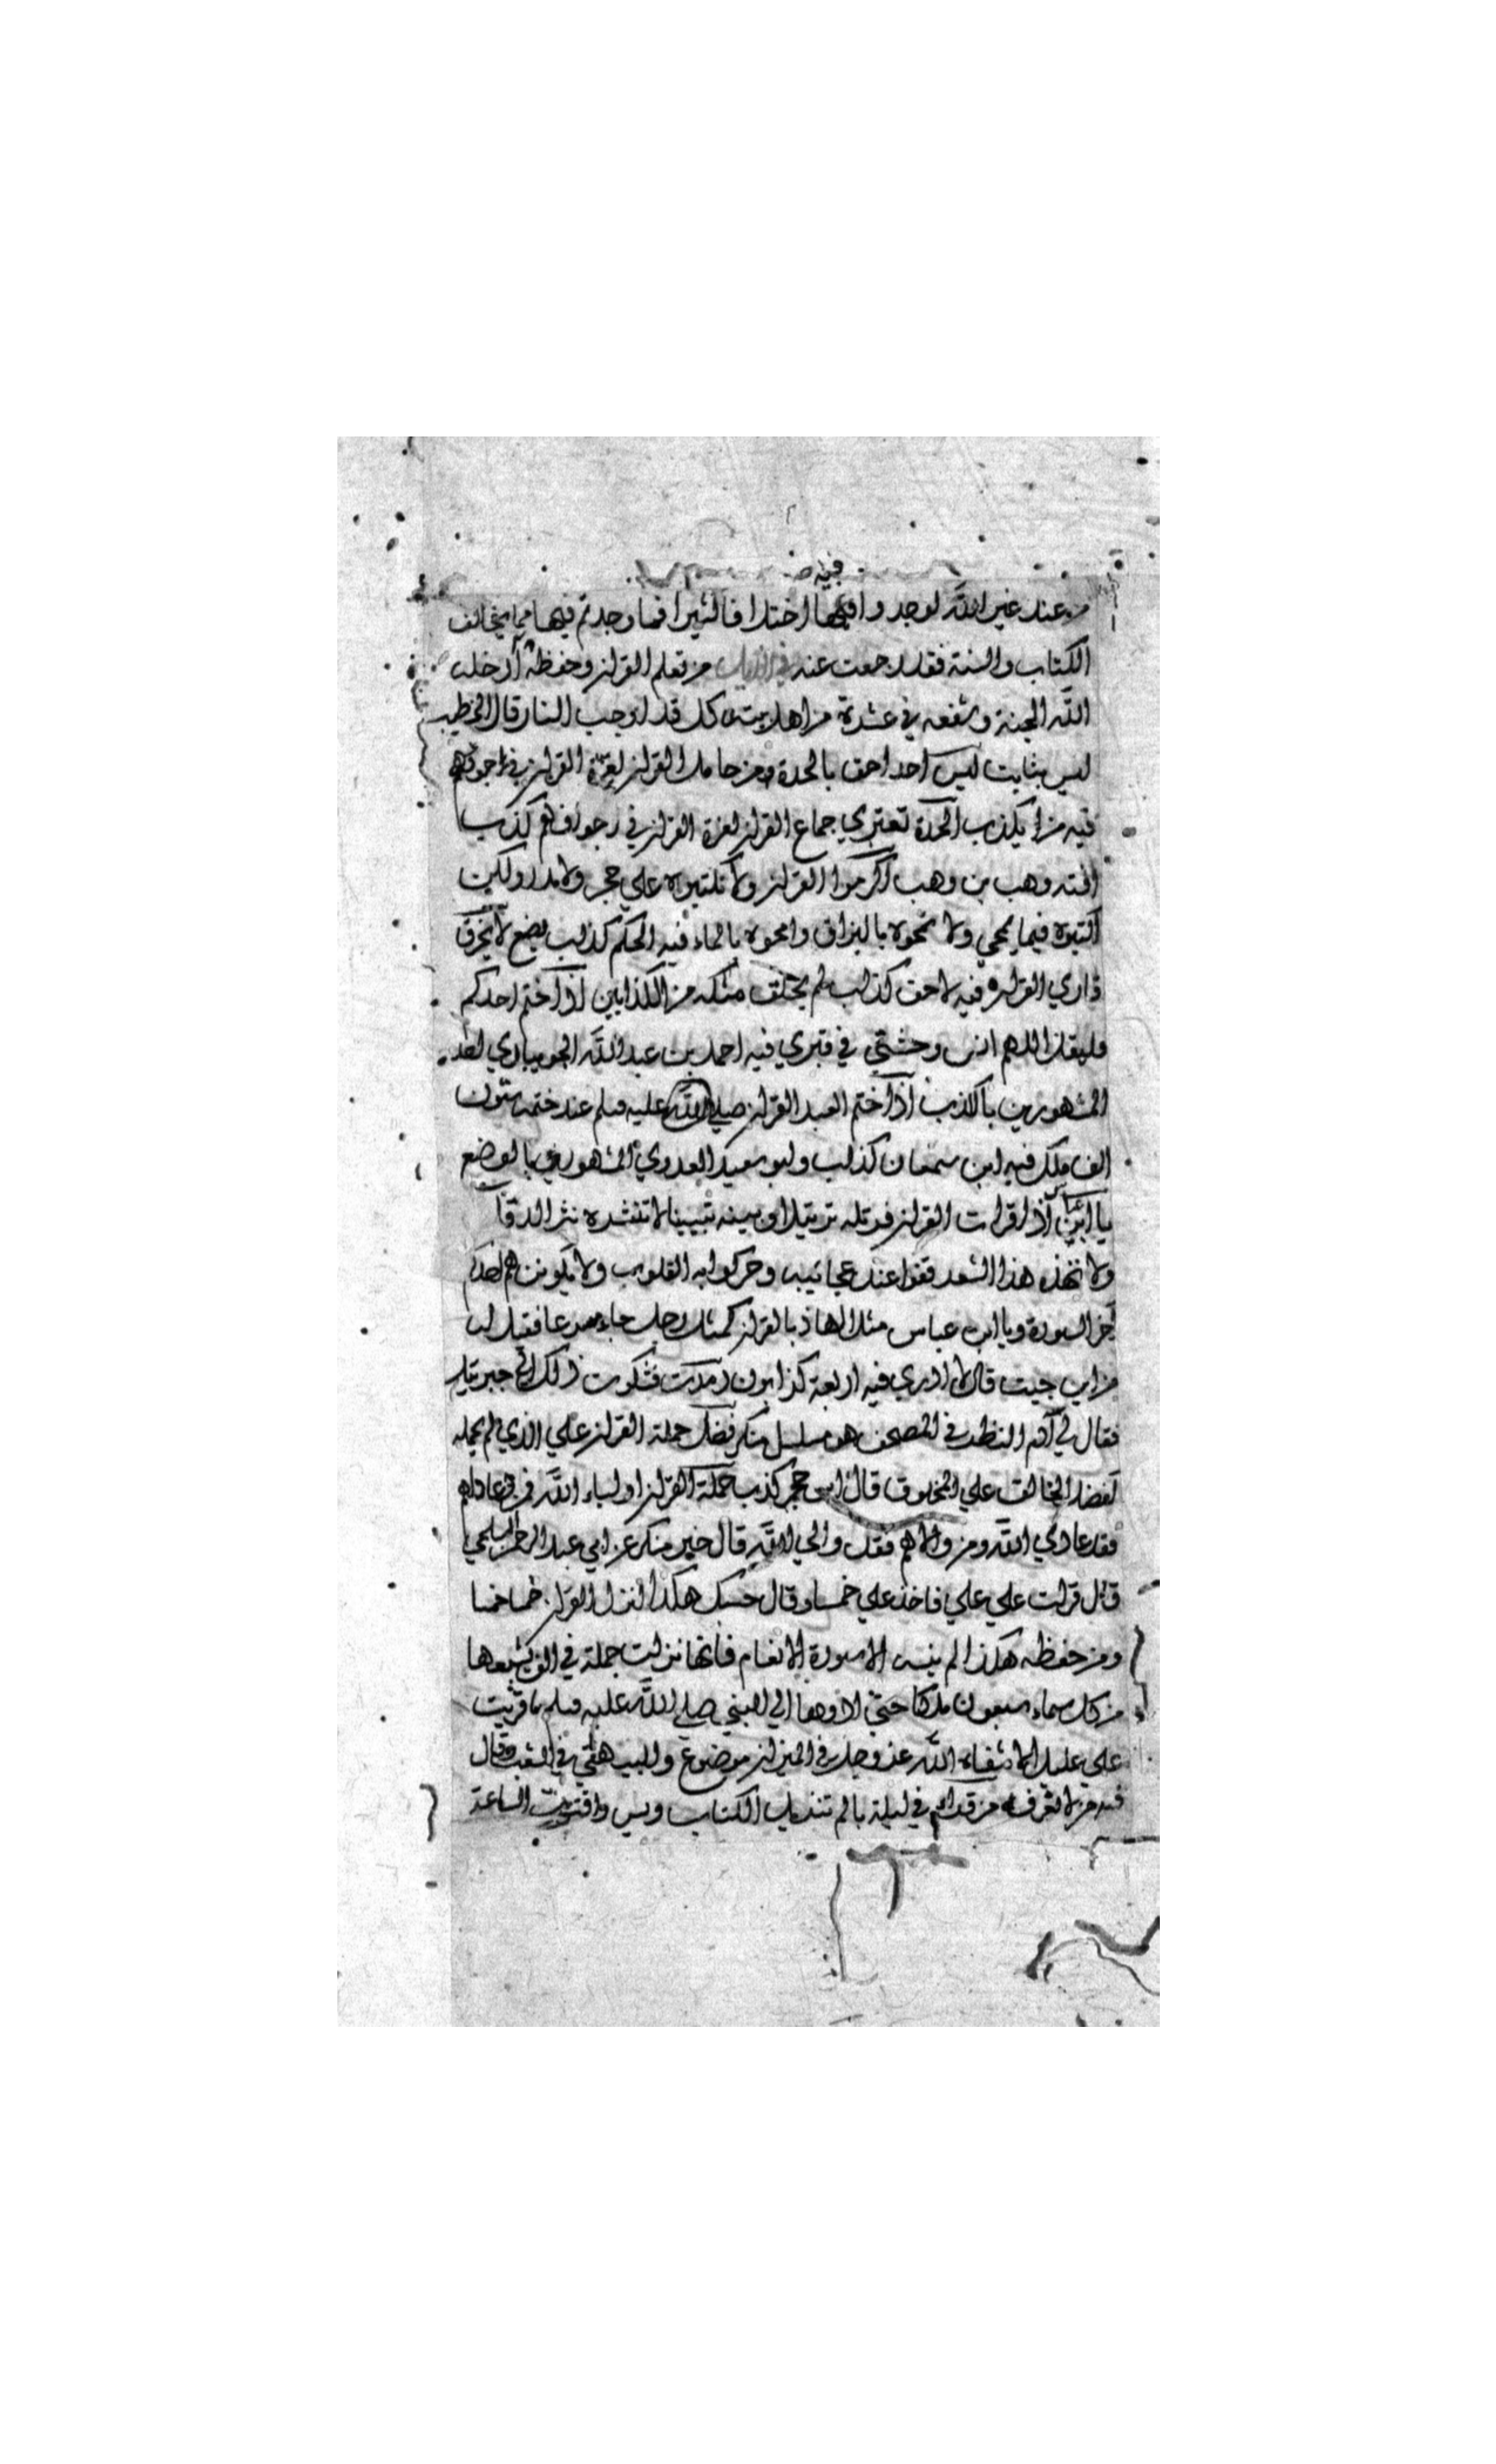 فيه
من عند غير الله لوجدوا فيها اختلافا كثيرا فما وجدتم فيها مما يخالف
الكتاب والسنة فقد رجعت عنه من تعلم القرآن وحفظه ادخله
الله الجنة وشفعه في عشرة من اهل بيته كل قد اوجب النار قال الخطيب
ليس بثابت ليس احد احق بالحدة من حامل القرآن لعزة القرآن في اجوافهم
فيه من يكذب الحدة تعتري جماع القرآن لعزة القرآن في اجوافهم كذب
افته وهب بن وهب اكرموا القرآن ولا تكتبوه علي حجر ولا مدر ولكن
اكتبوه فيما يمحي ولا تمحوه بالبزاق وامحوه بالماء فيه الحكم كذاب يضع لا يخرق
قاري القرآن فيه لاحق كذاب لم يخلق مثله من الكذابين اذا ختم احدكم
فليقل اللهم انس وحشتي في قبري فيه احمد بن عبد الله الجويباري احد
المشهورين بالكذب اذا ختم العبد القرآن صلي الله عليه وسلم عند ختمه ستون
الف ملك فيه ابن سمعان كذاب وابو سعيد العدوي المشهور بالوضع
يا ابن اذا قرات القرآن فرتله ترتيلا وبينه تبيينا لا تنثره نثر الدقل
ولا تهذه هذا الشعر قفوا عند عجائبه وحركوا به القلوب ولا يكونن هم احدكم
آخر السورة ويا ابن عباس مثل الهاذ بالقرآن كمثل رجل جاء مسرعا فقيل له
من اين جيت قال لا ادري فيه اربعة كذابون رمدت فشكوت ذلك الي جبرئيل
فقال لي ادم النظر في المصحف هو مسلسل منكر فضل حملة القرآن علي الذي لم يحمله
كفضل الخالق علي المخلوق قال ابن حجر كذب حملة القرآن اولياء الله فمن عاداهم
فقد عادي الله ومن والاهم فقد والي الله قال خبر منكر عن ابي عبد الرحمن السلمي
قال قرات علي علي فاخذ علي خمسا وقال حسبك هكذا انزل القرآن خمسا خمسا
ومن حفظه هكذا لم ينسه الا سورة الانعام فانها نزلت جملة في الف يشيعها
من كل سماء سبعون ملكا حتي ادوها الي النبي صلي الله عليه وسلم ما قرئت
علي عليل الا شفاه الله عز وجل في الميزان موضوع والبيهقي في الشعب وقال
فيه من لا يعرف من قرا في ليلة بالم تنزيل الكتاب ويس واقتربت الساعة